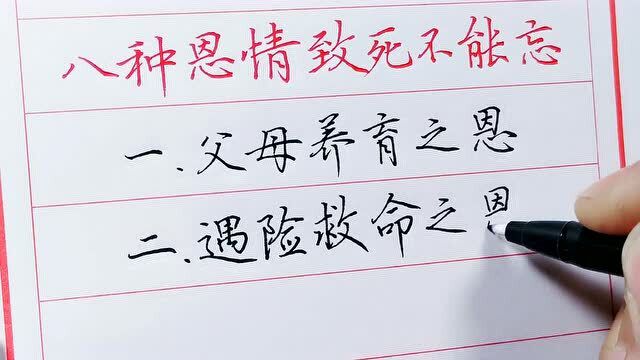 八种恩情致死不能忘
一.父母养育之恩
二.遇险救命之恩